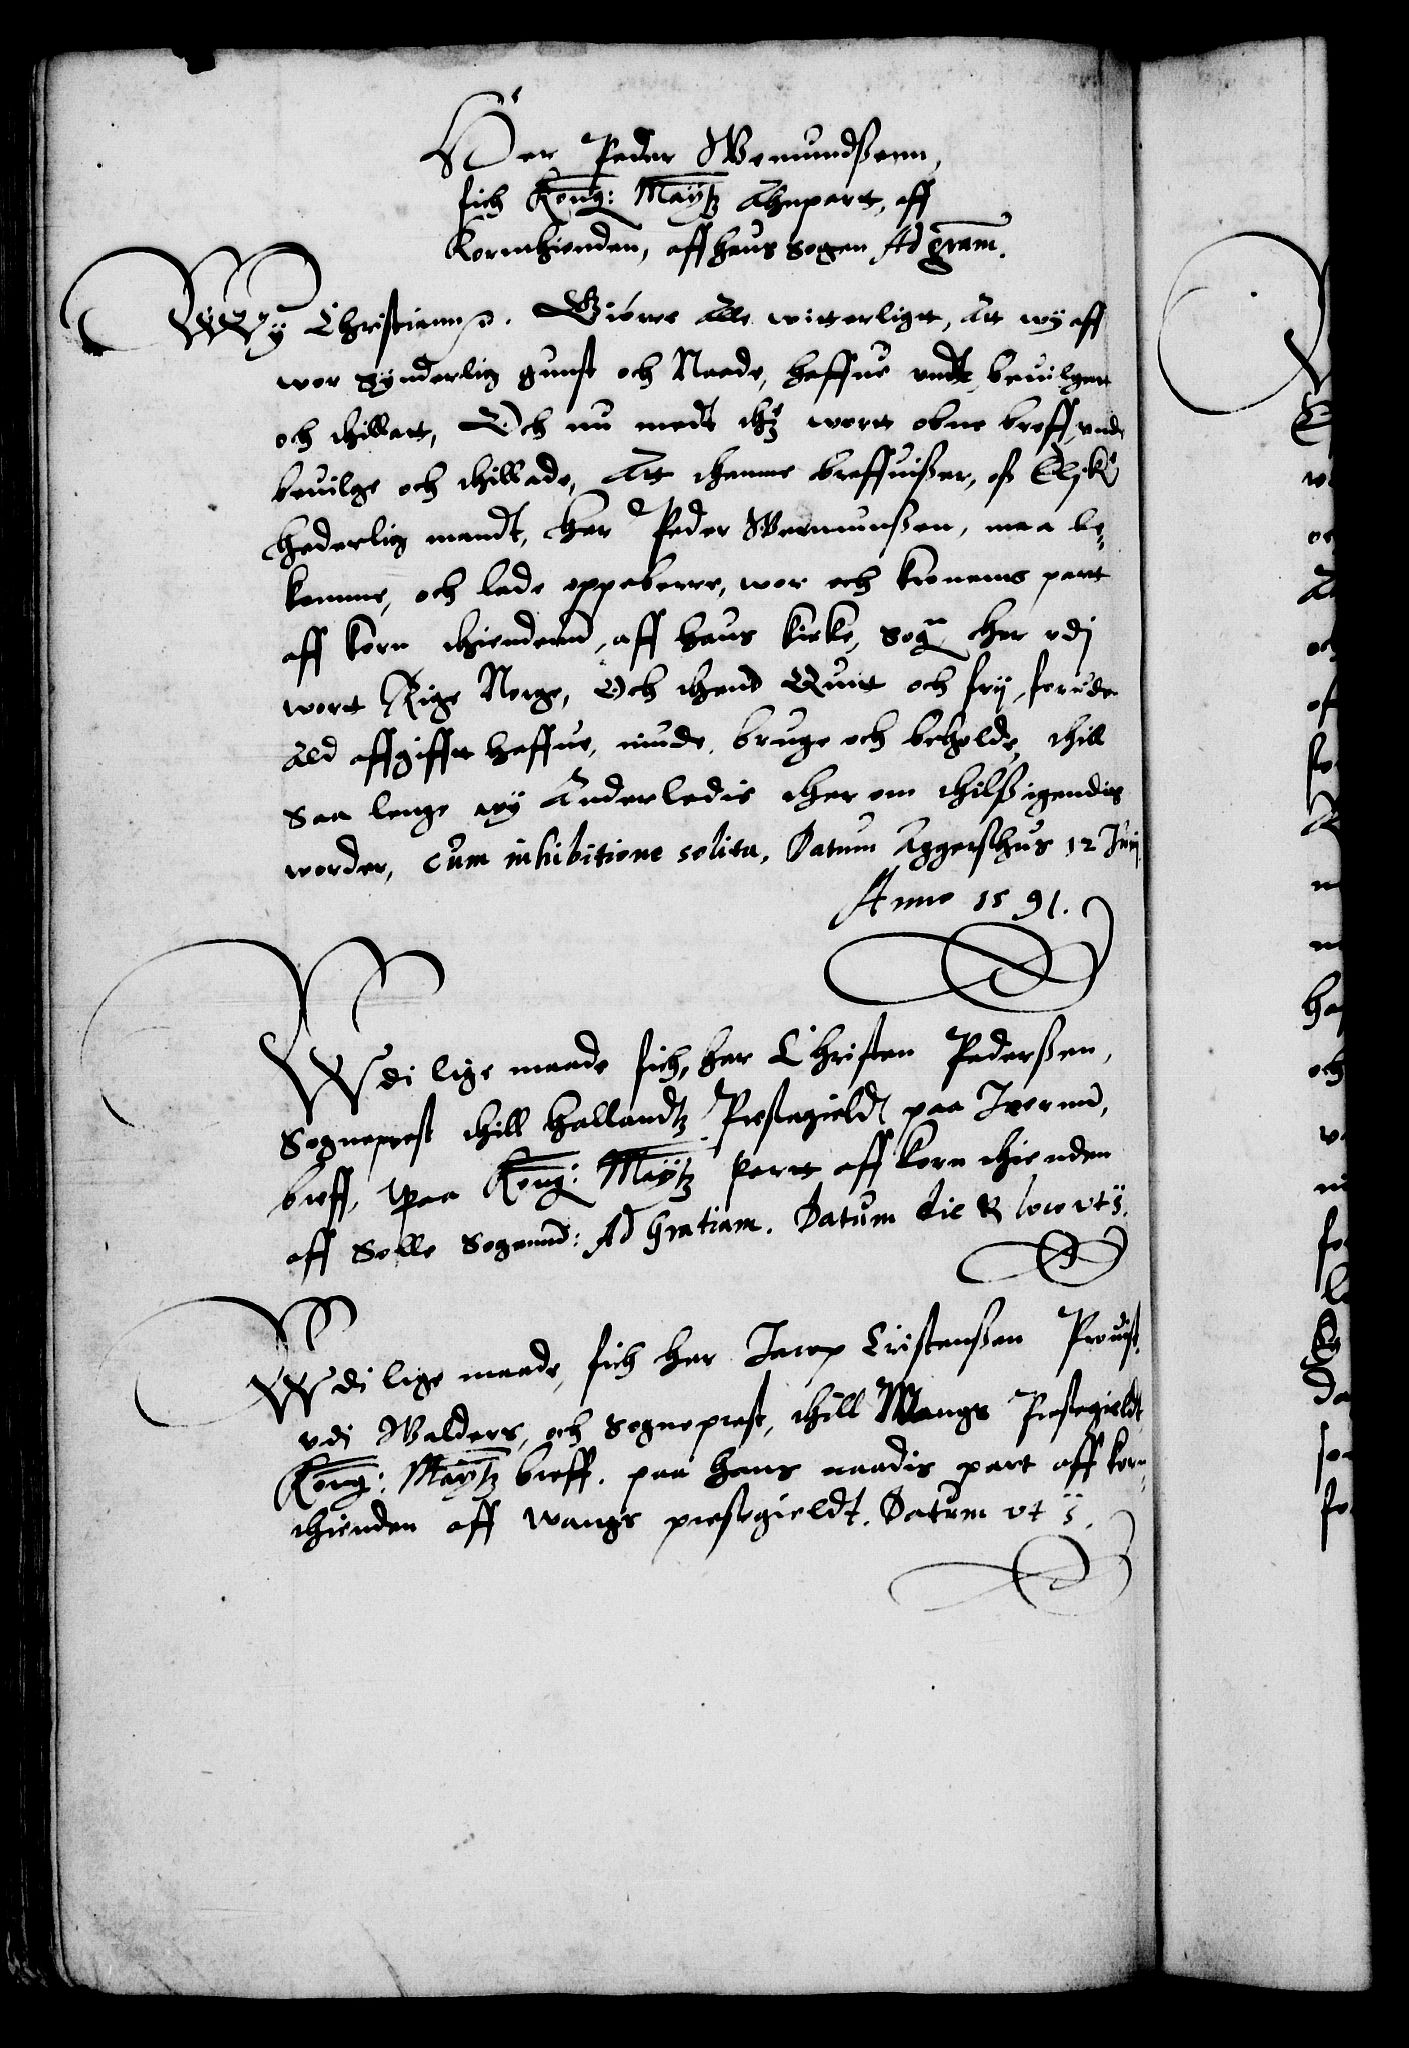 Her Peder Wemundßenn,
fich Kong: Maytz Thepartt, aff
Kornthienden, aff Haus Sogen Ad gram.
Wy Christiann &. Giörre Alle witterligt, Att wy aff
wor synderlig gunst och Naade, haffue undt, beuilgett
och thillatt, Och nu medt thz wortt obne breff, unde
beuilge och thillade, Att thenne breffuißer, oß Elsk:
hederlig mandt, her Peder Wermunßen, maa be-
komme, och lade oppeberre, wor och Kronens partt
aff korn thiendenn, aff Haus kirke, Sogn her udj
wortt Rige Norge, Och thend Quit och frij, foruden
Ald affgifft haffue, niude, bruge och beholde, thill
saa lenge wy Anderledis ther om thilsigendis
worder, cum inhibitione solita, Datum Aggerßhus 12 Junij
Anno 1591.
Udi lige maade fich, her Christen Pederßen,
Sogneprest thill Hallandtz Prestegieldt paa Jeeren,
breff, paa Kong: Maytz Partt aff korn thienden
aff Solle Sogennd: Ad Gratiam. Datum die & loco ut s.
Udi lige maade, fich her Jacop Cristenßen Prouist
udi Walders, och Sogneprest, thill Wangs Prestegieldt,
Kong: Maytz breff. paa Hans naadis part aff korn
thienden aff Wangs prestegieldt. Datum ut s.